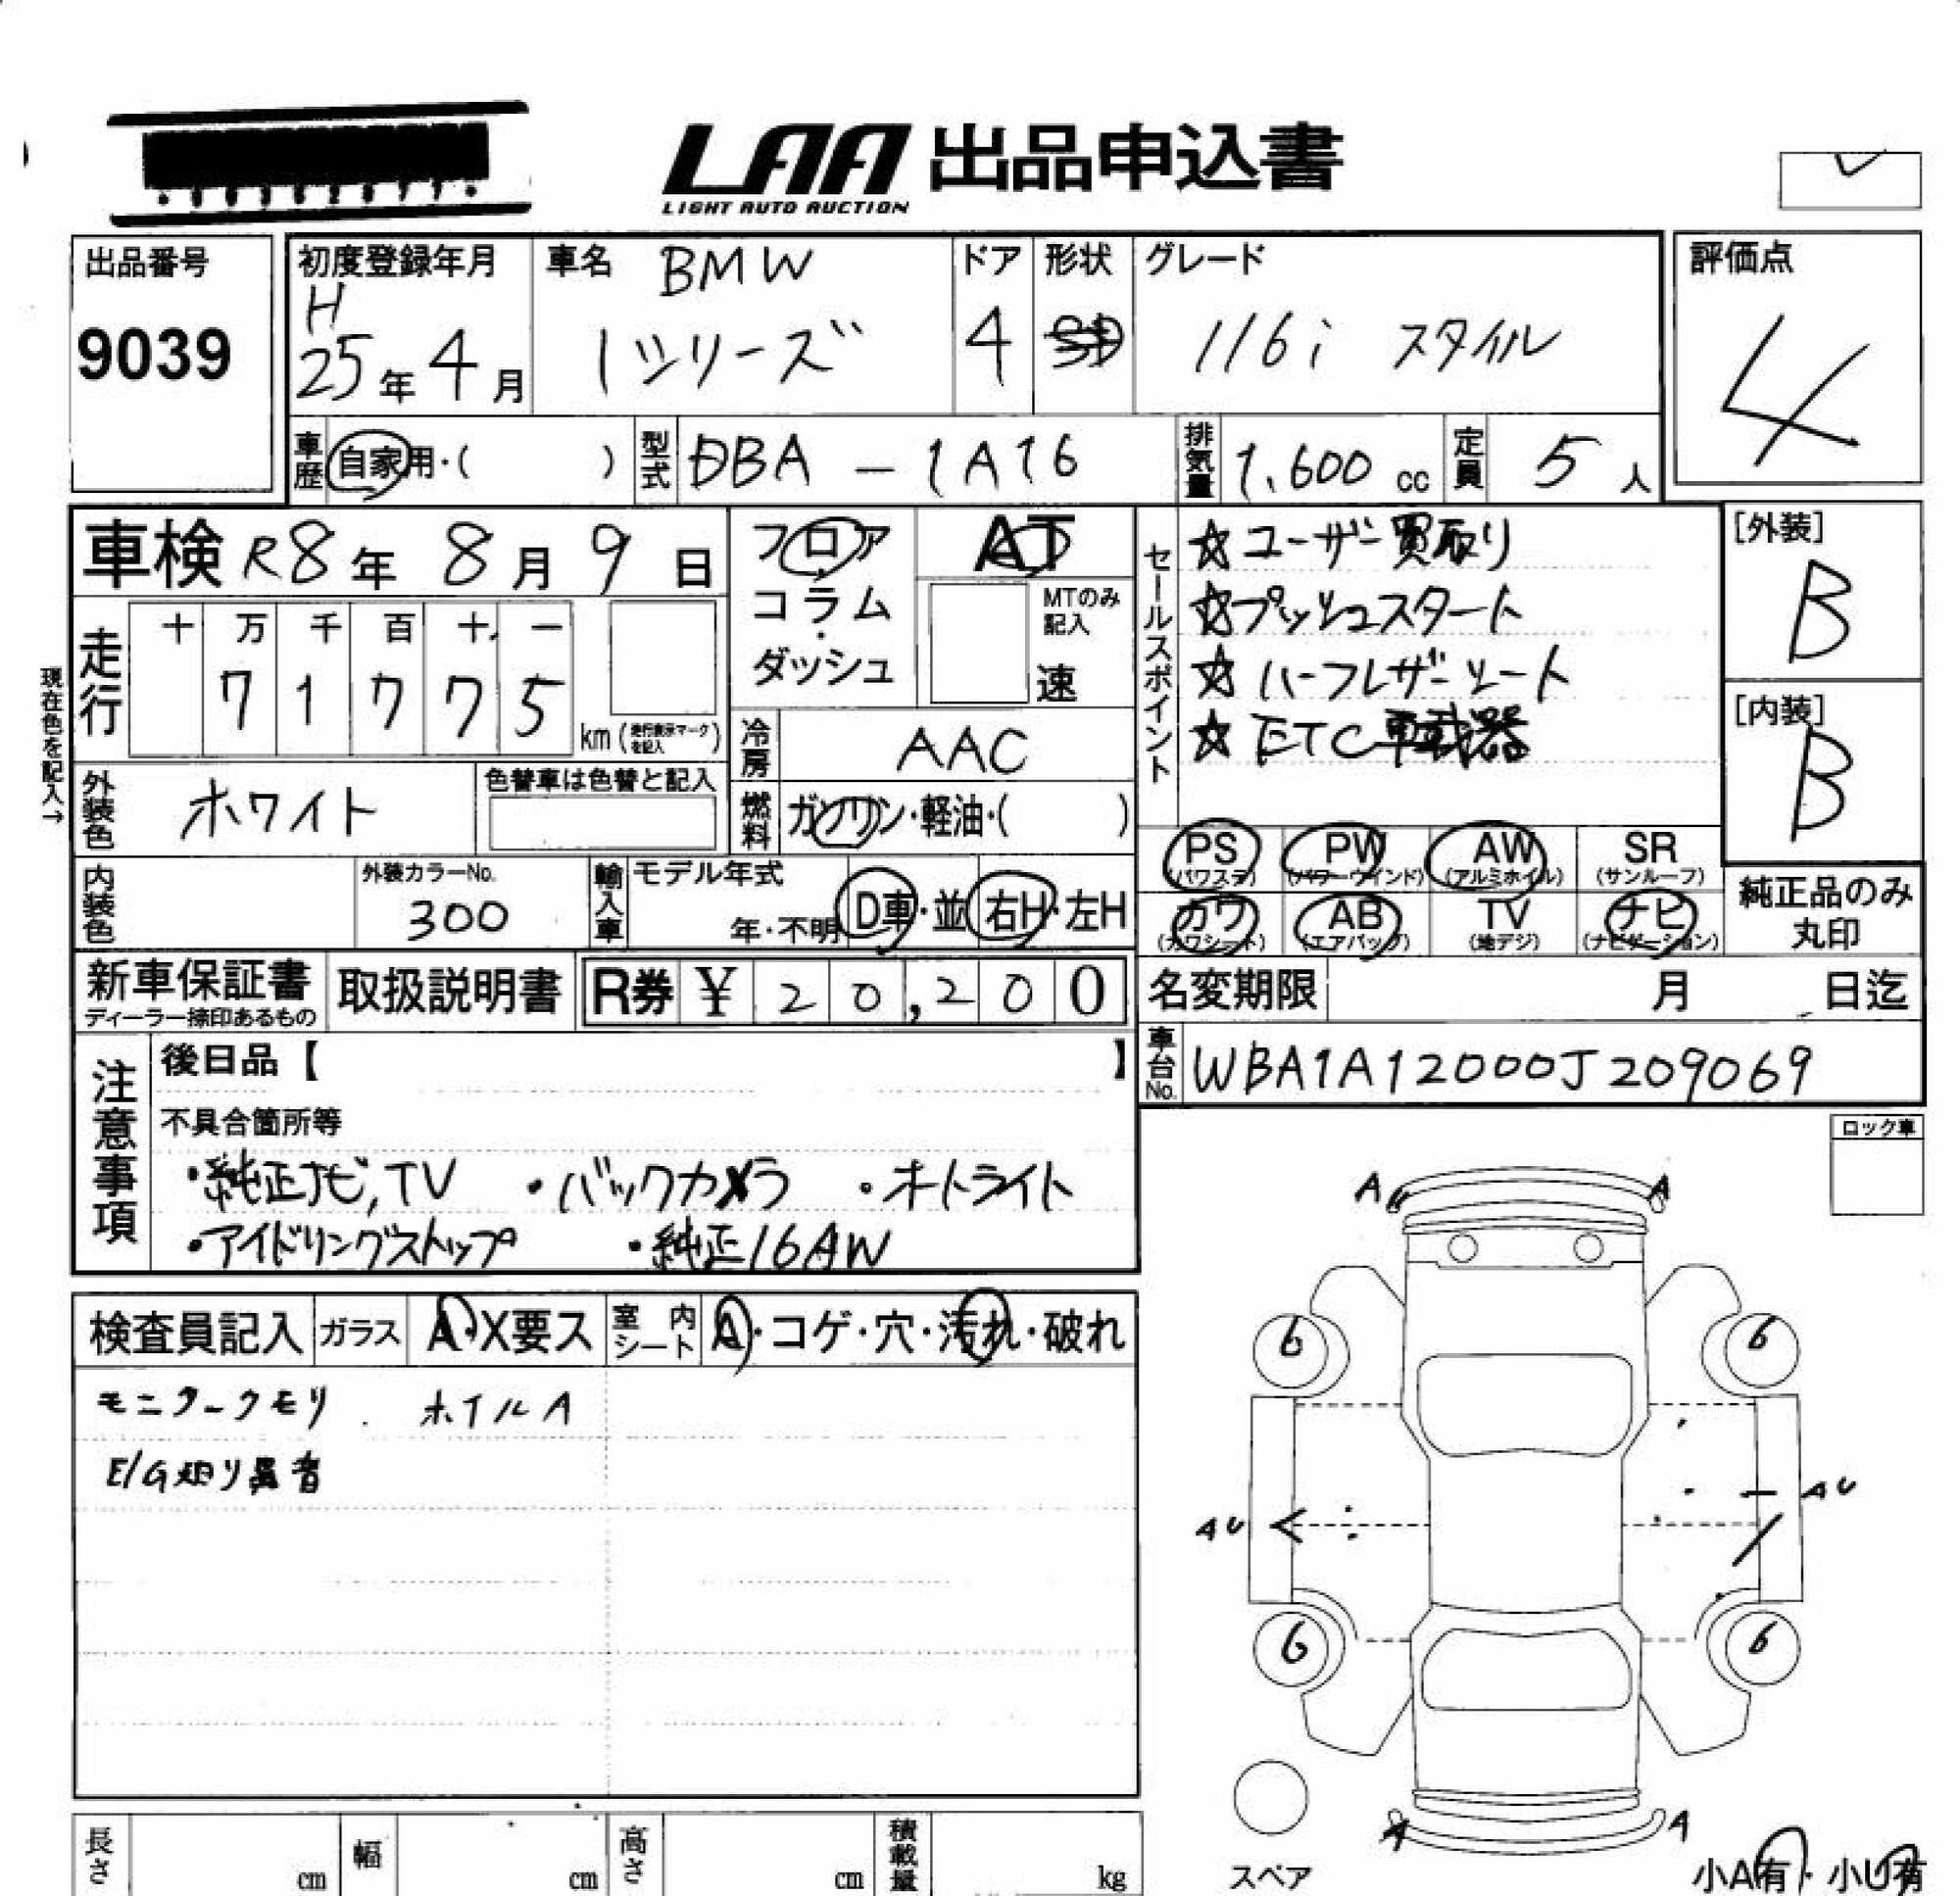 LAA 出品申込書
LIGHT AUTO AUCTION
出品番号
9039
初度登録年月
H
25年 4月
車名 BMW
1シリーズ
ドア
4
形状
グレード
116i スタイル
評価点
4
車歴 自家用・( )
型式 DBA - 1A16
排気量 1,600 cc
定員 5 人
車検 R8年 8月 9日
フロア・コラム・ダッシュ
AT
MTのみ記入
速
現在色を記入→
走行
十 万 千 百 十 一
7 1 7 7 5
km (走行表示マークを記入)
冷房 AAC
外装色 ホワイト
色替車は色替と記入
燃料 ガソリン・軽油・( )
内装色
外装カラーNo.
300
輸入車
モデル年式
年・不明
D車・並
右H・左H
セールスポイント
☆ユーザー買取り
☆プッシュスタート
☆ハーフレザーシート
☆ETC車載器
[外装]
B
[内装]
B
PS (パワステ)
PW (パワーウインド)
AW (アルミホイル)
SR (サンルーフ)
カワ (カワシート)
AB (エアバッグ)
TV (地デジ)
ナビ (ナビゲーション)
純正品のみ丸印
新車保証書
ディーラー捺印あるもの
取扱説明書
R券 ¥ 20,200
名変期限 月 日迄
車台No. WBA1A12000J209069
注意事項
後日品【 】
不具合箇所等
・純正ナビ,TV ・バックカメラ ・オートライト
・アイドリングストップ ・純正16AW
ロック車
検査員記入
ガラス A・X要ス
室内シート A・コゲ・穴・汚れ・破れ
モニタークモリ . ホイルA
E/G切り異音
AU A
6 6
AU
AU
6 6
A A
スペア
小A有・小U有
長さ cm
幅 cm
高さ cm
積載量 kg